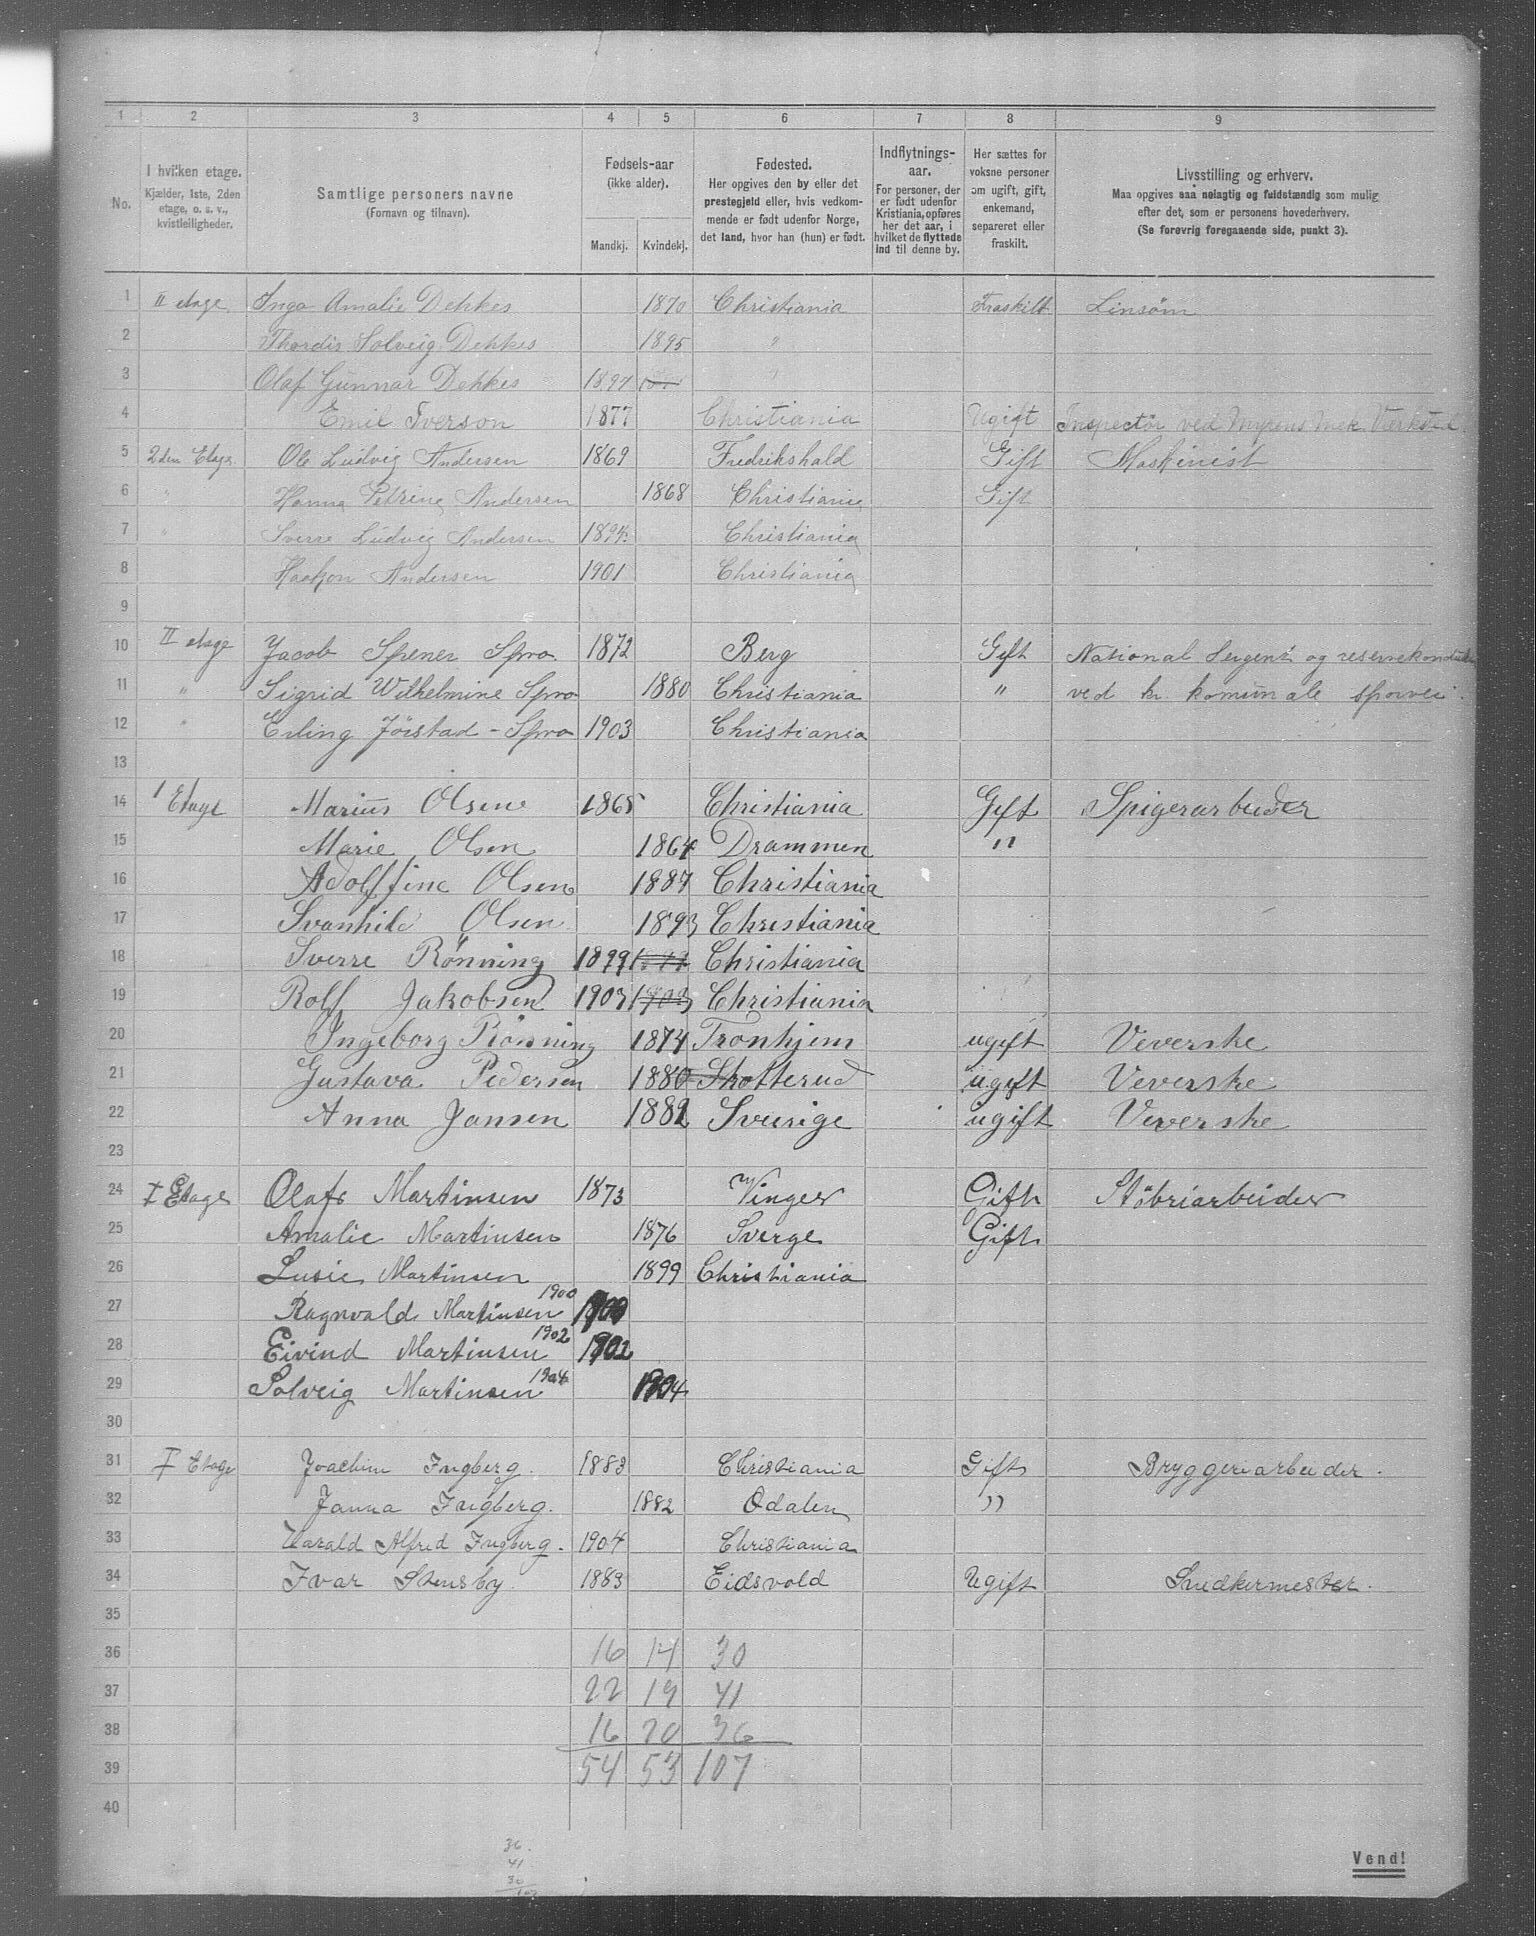 1 2 3 4 5 6 7 8 9
No.
I hvilken etage. Kjælder, 1ste, 2den etage, o. s. v., kvistleiligheder.
Samtlige personers navne (Fornavn og tilnavn).
Fødsels-aar (ikke alder). Mandkj. Kvindekj.
Fødested. Her opgives den by eller det prestegjeld eller, hvis vedkommende er født udenfor Norge, det land, hvor han (hun) er født.
Indflytnings-aar. For personer, der er født udenfor Kristiania, opføres her det aar, i hvilket de flyttede ind til denne by.
Her sættes for voksne personer om ugift, gift, enkemand, separeret eller fraskilt.
Livsstilling og erhverv. Maa opgives saa nøiagtig og fuldstændig som mulig efter det, som er personens hovederhverv. (Se forøvrig foregaaende side, punkt 3).
1 II etage Inga Amalie Dehkes 1870 Christiania Fraskilt Linsøm
2 Thordis Solveig Dehkes 1895 "
3 Olaf Gunnar Dehkes 1897 "
4 Emil Iverson 1877 Christiania Ugift Inspectör ved Myrens mek. Værksted.
5 2den Etage Ole Ludvig Andersen 1869 Fredrikshald Gift Maskinist
6 " Hanna Petrine Andersen 1868 Christiania Gift
7 " Sverre Ludvig Andersen 1894 Christiania
8 Haakon Andersen 1901 Christiania
9
10 II etage Jacob Spener Spro. 1872 Berg Gift National Sergent og reservekonduktør
11 " Sigrid Wilhelmine Spro 1880 Christiania " ved kr. komunale sporvei.
12 " Erling Jörstad - Spro 1903 Christiania
13
14 1 Etage Marius Olsen 1865 Christiania Gift Spigerarbeider
15 Marie Olsen 1864 Drammen "
16 Adolffine Olsen 1887 Christiania
17 Svanhild Olsen 1893 Christiania
18 Sverre Rönning 1899 1899 Christiania
19 Rolf Jakobsen 1903 1903 Christiania
20 Ingeborg Rönning 1874 Tronhjem ugift Veverske
21 Gustava Pedersen 1880 Skotterud ugift Veverske
22 Anna Jansen 1882 Sverige ugift Veverske
23
24 I Etage Olaf Martinsen 1873 Vinger Gift Stöbriarbeider
25 Amalie Martinsen 1876 Sverge Gift
26 Lusie Martinsen 1899 Christiania
27 Ragnvald Martinsen 1900 1900
28 Eivind Martinsen 1902 1902
29 Solveig Martinsen 1904 1904
30
31 I Etage Joachim Ingberg. 1883 Christiania Gift Bryggeriarbeider.
32 Janna Ingberg. 1882 Odalen "
33 Harald Alfred Ingberg. 1904 Christiania
34 Ivar Stensby. 1883 Eidsvold Ugift Snedkermester.
35
36 16 14 30
37 22 19 41
38 16 20 36
39 54 53 107
40
36.
41
30
107
Vend!